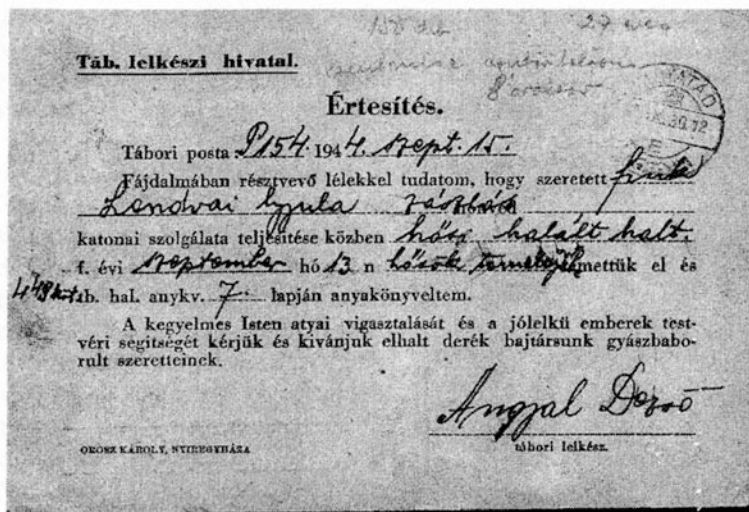 150 dib 27 éves
Táb. lelkészi hivatal.
8 órakor
NYATÁD
.30.12
Értesítés.
Tábori posta: P154. 1944. szept. 15.
Fájdalmában résztvevő lélekkel tudatom, hogy szeretett fiuk
Lendvai Gyula zászlós
katonai szolgálata teljesítése közben hősi halált halt.
f. évi szeptember hó 13 n hősök temetőjé temettük el és
táb. hal. anykv. 7. lapján anyakönyveltem.
A kegyelmes Isten atyai vigasztalását és a jólelkü emberek test-
véri segitségét kérjük és kivánjuk elhalt derék bajtársunk gyászbabo-
rult szeretteinek.
Angyal Dezső
OROSZ KÁROLY, NYIREGYHÁZA
tábori lelkész.